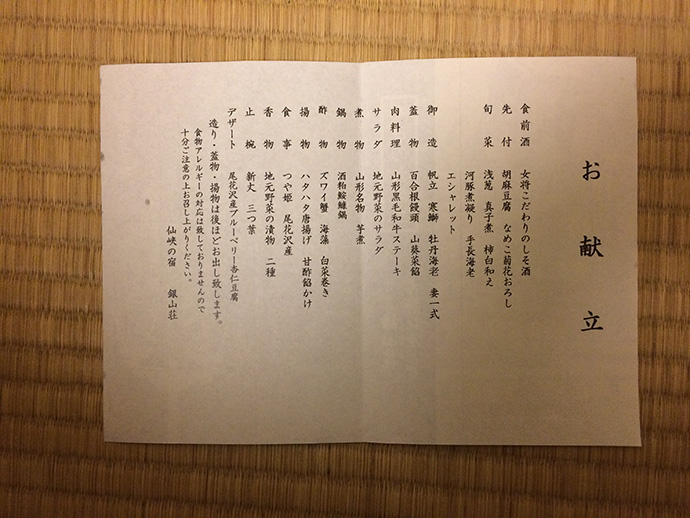 お献立
食前酒 女将こだわりのしそ酒
先付 胡麻豆腐 なめこ菊花おろし
旬菜 浅葱 真子煮 柿白和え
河豚煮凝り 手長海老
エシャレット
御造 帆立 寒鰤 牡丹海老 妻一式
蓋物 百合根饅頭 山葵菜餡
肉料理 山形黒毛和牛ステーキ
サラダ 地元野菜のサラダ
煮物 山形名物 芋煮
鍋物 酒粕鮟鱇鍋
酢物 ズワイ蟹 海藻 白菜巻き
揚物 ハタハタ唐揚げ 甘酢餡かけ
食事 つや姫 尾花沢産
香物 地元野菜の漬物 二種
止椀 新丈 三つ葉
デザート 尾花沢産ブルーベリー杏仁豆腐
造り・蓋物・揚物は後ほどお出し致します。
食物アレルギーの対応は致しておりませんので
十分ご注意の上お召し上がりください。
仙峡の宿 銀山荘